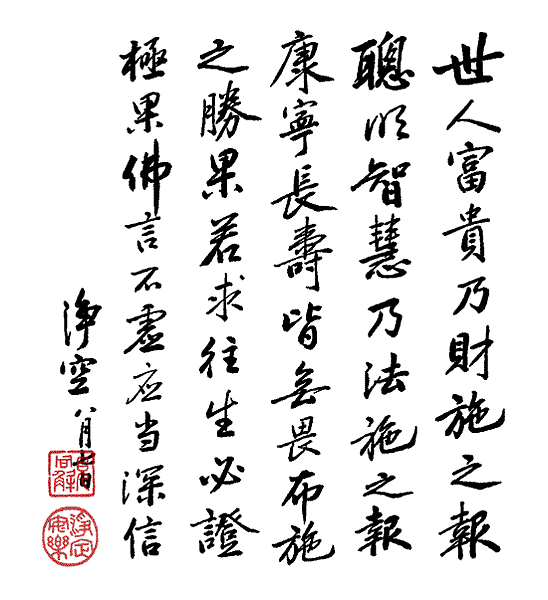 世人富貴乃財施之報
聰明智慧乃法施之報
康寧長壽皆無畏布施
之勝果若求往生必證
極果佛言不虛应当深信
淨空八月